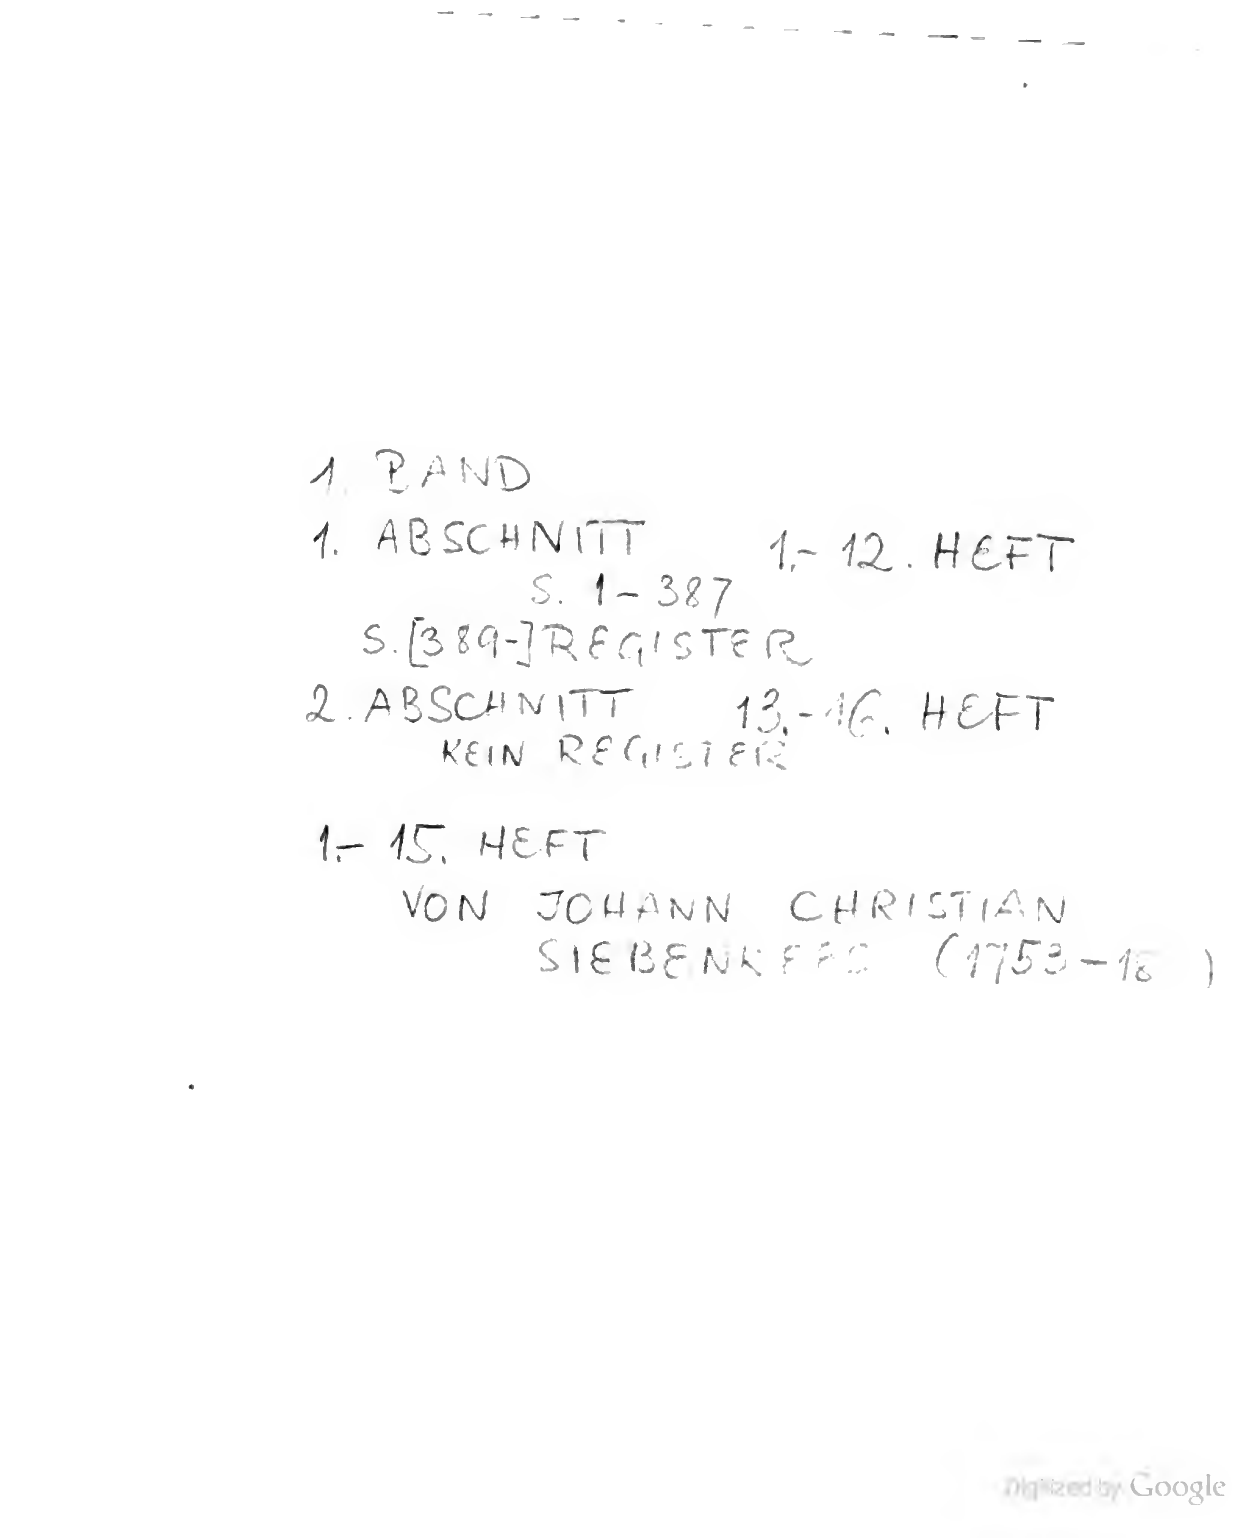 1. BAND
1. ABSCHNITT 1.- 12. HEFT
S. 1-387
S.[389-]REGISTER
2. ABSCHNITT 13.-16. HEFT
KEIN REGISTER
1.- 15. HEFT
VON JOHANN CHRISTIAN
SIEBENKEES (1753-18 )
Digitized by Google